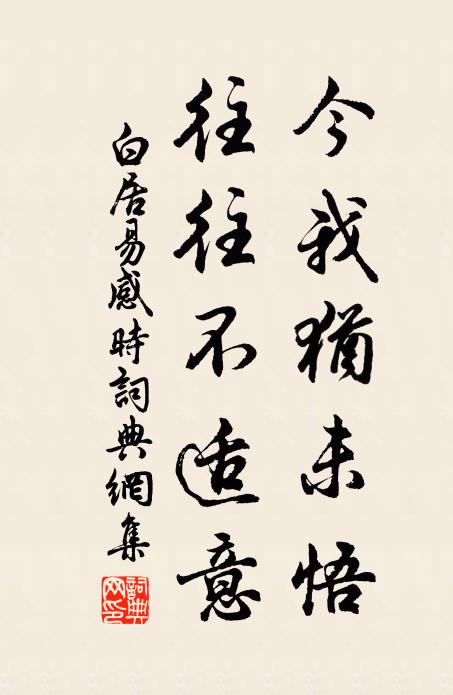 今我猶未悟
往往不适意
白居易感時詞典網集
詞典網印